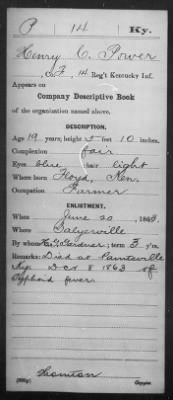 P 14 Ky.
Henry C. Power
Co. F, 14 Reg't Kentucky Inf.
Appears on
Company Descriptive Book
of the organization named above.
DESCRIPTION.
Age 19 years; height 5 feet 10 inches.
Complexion fair
Eyes blue; hair light
Where born Floyd, Ken.
Occupation Farmer
ENLISTMENT.
When June 20, 1863.
Where Salyersville
By whom Gardner; term 3 y'rs.
Remarks: Died at Paintsville
Ky. Oct 8 1863 of
Typhoid fever.
Thornton
Copyist.